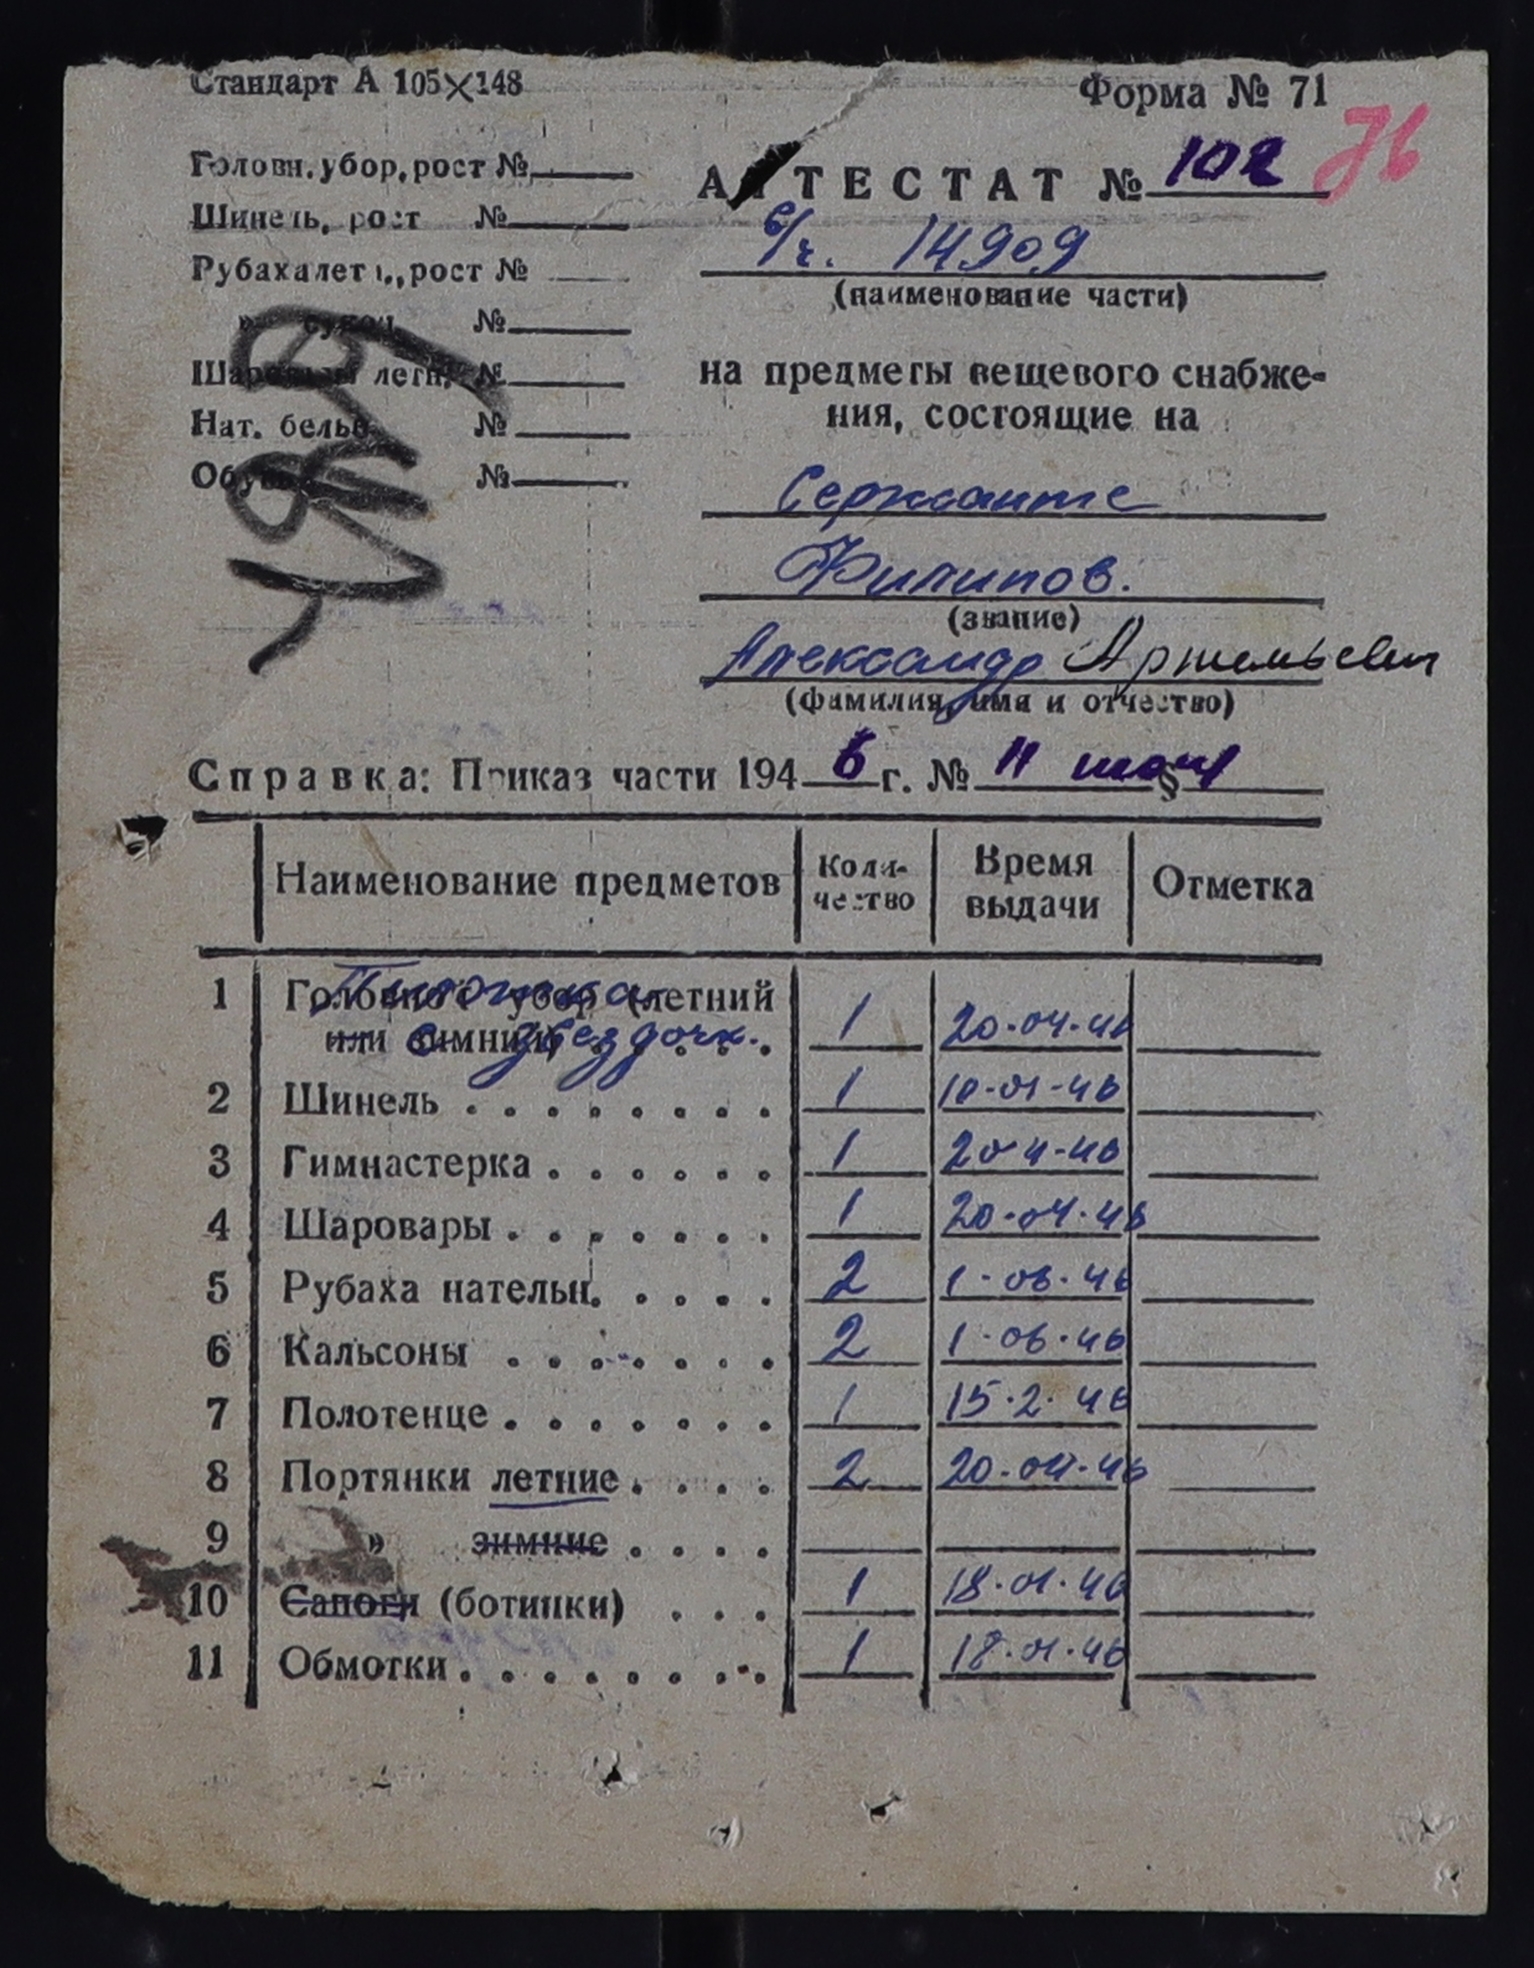 Стандарт А 105×148
Форма № 71
76
Головн. убор, рост №
Шинель, рост №
Рубаха летн., рост №
» сукон. №
Шаровары летн. №
Нат. белье №
Обувь №
АТТЕСТАТ № 102
в/ч. 14909
(наименование части)
на предметы вещевого снабже-
ния, состоящие на
Сержанте
Филипов.
(звание)
Александр Артемьевич
(фамилия, имя и отчество)
Справка: Приказ части 194 6 г. № 11 §
Наименование предметов Коли-чество Время выдачи Отметка
1 Головной убор (летний
или зимний)
Пилотка
со звездочк. 1 20.04.46
2 Шинель 1 10-01-46
3 Гимнастерка 1 20 4-46
4 Шаровары 1 20.04.46
5 Рубаха нательн. 2 1.06.46
6 Кальсоны 2 1.06.46
7 Полотенце 1 15.2.46
8 Портянки летние 2 20.04.46
9 » зимние
10 Сапоги (ботинки) 1 18.01.46
11 Обмотки 1 18.01.46